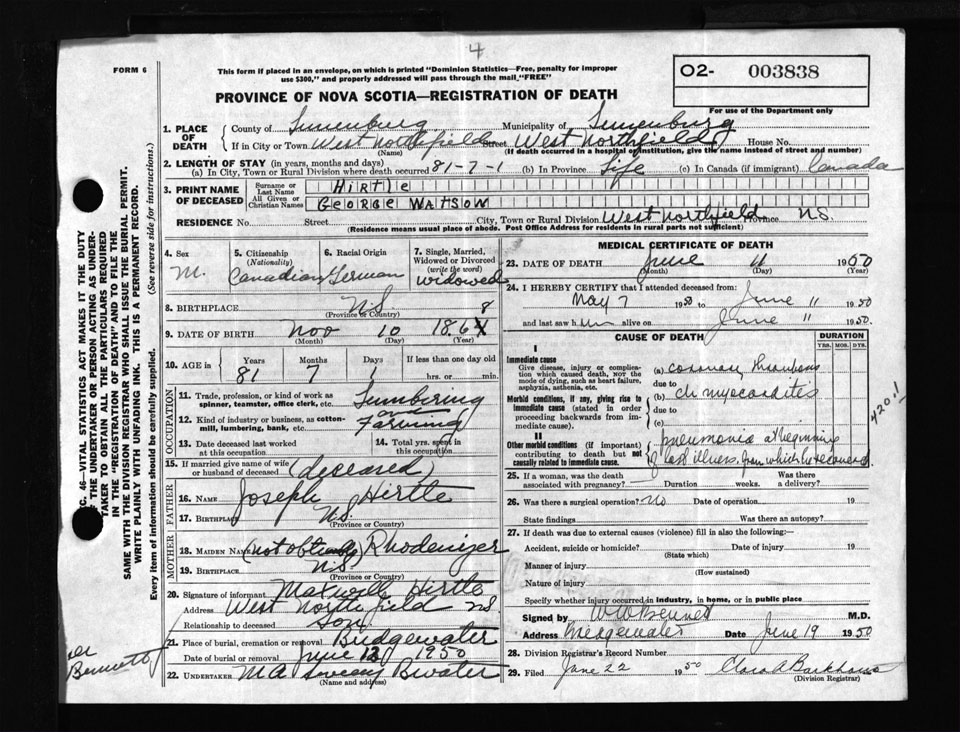 4
FORM 6
This form if placed in an envelope, on which is printed "Dominion Statistics—Free, penalty for improper
use $300," and properly addressed will pass through the mail "FREE"
O2- 003838
For use of the Department only
PROVINCE OF NOVA SCOTIA—REGISTRATION OF DEATH
1. PLACE OF DEATH
County of Lunenburg Municipality of Lunenburg
If in City or Town West Northfield Street West Northfield House No.
(Name) (If death occurred in a hospital or institution, give the name instead of street and number)
2. LENGTH OF STAY (in years, months and days)
(a) In City, Town or Rural Division where death occurred 81-7-1 (b) In Province Life (c) In Canada (if immigrant) Canada
3. PRINT NAME OF DECEASED
Surname or Last Name HIRTLE
All Given or Christian Names GEORGE WATSON
RESIDENCE No. Street City, Town or Rural Division West Northfield Province NS
(Residence means usual place of abode. Post Office Address for residents in rural parts not sufficient)
4. Sex M.
5. Citizenship (Nationality) Canadian
6. Racial Origin German
7. Single, Married, Widowed or Divorced (write the word) widowed
8. BIRTHPLACE N.S. 8
(Province or Country)
9. DATE OF BIRTH Nov 10 186
(Month) (Day) (Year)
10. AGE in Years Months Days If less than one day old
81 7 1 hrs. or min.
OCCUPATION
11. Trade, profession, or kind of work as spinner, teamster, office clerk, etc. Lumbering
and
12. Kind of industry or business, as cotton-mill, lumbering, bank, etc. Farming
13. Date deceased last worked at this occupation
14. Total yrs. spent in this occupation
15. If married give name of wife or husband of deceased (deceased)
FATHER
16. NAME Joseph Hirtle
17. BIRTHPLACE N.S.
(Province or Country)
MOTHER
18. MAIDEN NAME (not obtainable) Rhodenizer
19. BIRTHPLACE N.S.
(Province or Country)
20. Signature of informant Maxwell Hirtle
Address West Northfield N.S.
Relationship to deceased Son
21. Place of burial, cremation or removal Bridgewater
Date of burial or removal June 1950
22. UNDERTAKER M A Sweeny Bwater
(Name and address)
MEDICAL CERTIFICATE OF DEATH
23. DATE OF DEATH June 11 1950
(Month) (Day) (Year)
24. I HEREBY CERTIFY that I attended deceased from:
May 7 1950 to June 11 1950
and last saw him alive on June 11 1950.
CAUSE OF DEATH
DURATION
YRS. MOS. DYS.
I
Immediate cause
Give disease, injury or complication which caused death, NOT the mode of dying, such as heart failure, asphyxia, asthenia, etc.
(a) coronary thrombosis
due to
Morbid conditions, if any, giving rise to immediate cause (stated in order proceeding backwards from immediate cause).
(b) ch myocarditis
due to
(c)
420.1
II
Other morbid conditions (if important) contributing to death but not causally related to immediate cause.
pneumonia at beginning
of last illness from which he recovered
25. If a woman, was the death associated with pregnancy? Duration weeks. Was there a delivery?
26. Was there a surgical operation? No Date of operation 19
State findings Was there an autopsy?
27. If death was due to external causes (violence) fill in also the following:
Accident, suicide or homicide? Date of injury 19
(State which)
Manner of injury
(How sustained)
Nature of injury
Specify whether injury occurred in industry, in home, or in public place
Signed by W W Bennet M.D.
Address Bridgewater Date June 19 1950
28. Division Registrar's Record Number
29. Filed June 22 1950 Clara A Barkhouse
(Division Registrar)
C. 46—VITAL STATISTICS ACT MAKES IT THE DUTY
OF THE UNDERTAKER OR PERSON ACTING AS UNDERTAKER TO OBTAIN ALL THE PARTICULARS REQUIRED
IN THE "REGISTRATION OF DEATH" AND TO FILE THE
SAME WITH THE DIVISION REGISTRAR WHO SHALL ISSUE THE BURIAL PERMIT.
WRITE PLAINLY WITH UNFADING INK. THIS IS A PERMANENT RECORD.
Every item of information should be carefully supplied. (See reverse side for instructions.)
Bennett